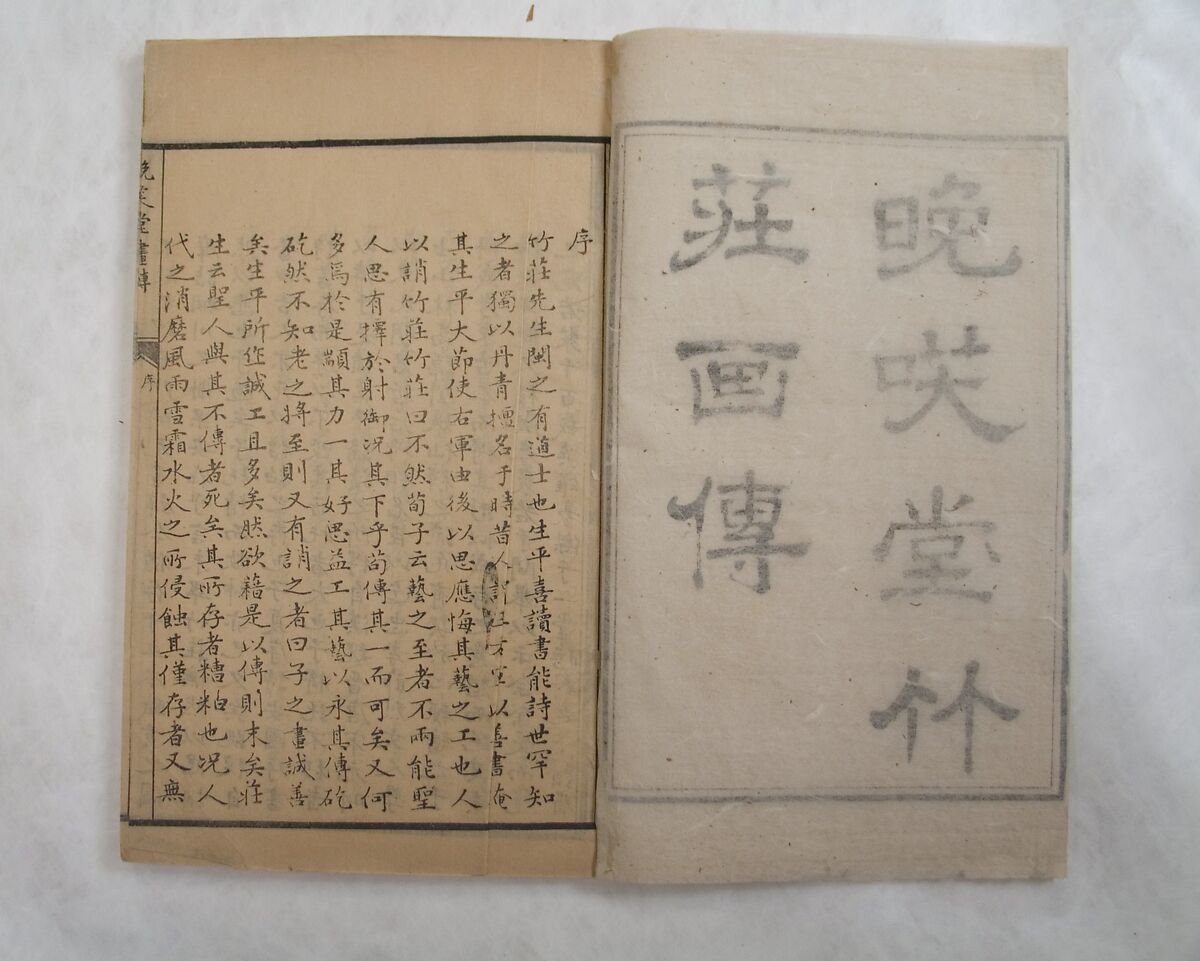 晚㗛堂竹
莊画傳
序
竹莊先生閩之有道士也生平喜讀書能詩世罕知
之者獨以丹青擅名于時昔人訂以善書奄
其生平大節使右軍由後以思應悔其藝之工也人
以誚竹莊竹莊曰不然荀子云藝之至者不兩能聖
人思有擇於射御况其下乎苟傳其一而可矣又何
多焉於是顓其力一其好思益工其藝以永其傳矻
矻然不知老之將至則又有誚之者曰子之畫誠善
矣生平所作誠工且多矣然欲藉是以傳則末矣莊
生云聖人與其不傳者死矣其所存者糟粕也况人
代之消磨風雨雪霜水火之所侵蝕其僅存者又無
晚笑堂畫傳
序